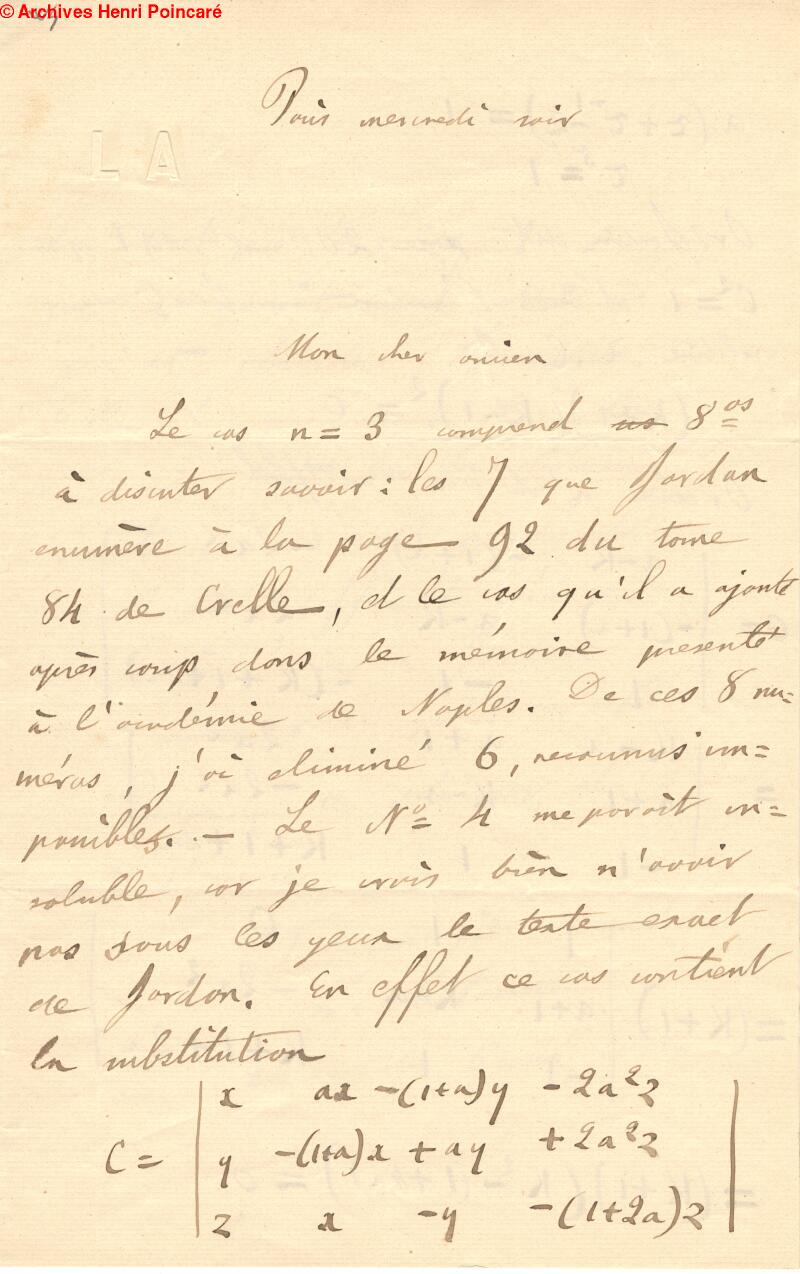 © Archives Henri Poincaré
L A
Paris mercredi soir
Mon cher ancien
Le cas n = 3 comprend 8 cas
à discuter savoir : les 7 que Jordan
enumère à la page 92 du tome
84 de Crelle, et le cas qu'il a ajouté
après coup dans le mémoire présenté
à l'académie de Naples. De ces 8 nu-
méros, j'ai eliminé 6, reconnus im=
possibles. — Le No 4 me paraît in=
soluble, car je crois bien n'avoir
pas sous les yeux le texte exact
de Jordan. En effet ce cas contient
la substitution
C = | x ax - (1+a)y - 2a²z |
y -(1+a)x + ay + 2a²z
z x - y -(1+2a)z